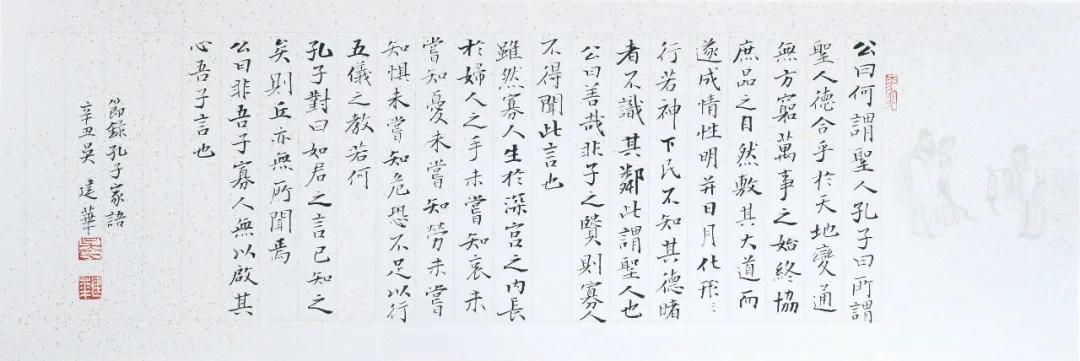 公曰何謂聖人孔子曰所謂
聖人德合乎於天地變通
無方窮萬事之始終協
庶品之自然敷其大道而
遂成情性明并日月化形〻
行若神下民不知其德睹
者不識其鄰此謂聖人也
公曰善哉非子之賢則寡人
不得聞此言也
雖然寡人生於深宮之內長
於婦人之手未嘗知哀未
嘗知憂未嘗知勞未嘗
知懼未嘗知危恐不足以行
五儀之教若何
孔子對曰如君之言已知之
矣則丘亦無所聞焉
公曰非吾子寡人無以啟其
心吾子言也
節錄孔子家語
辛丑吳建華